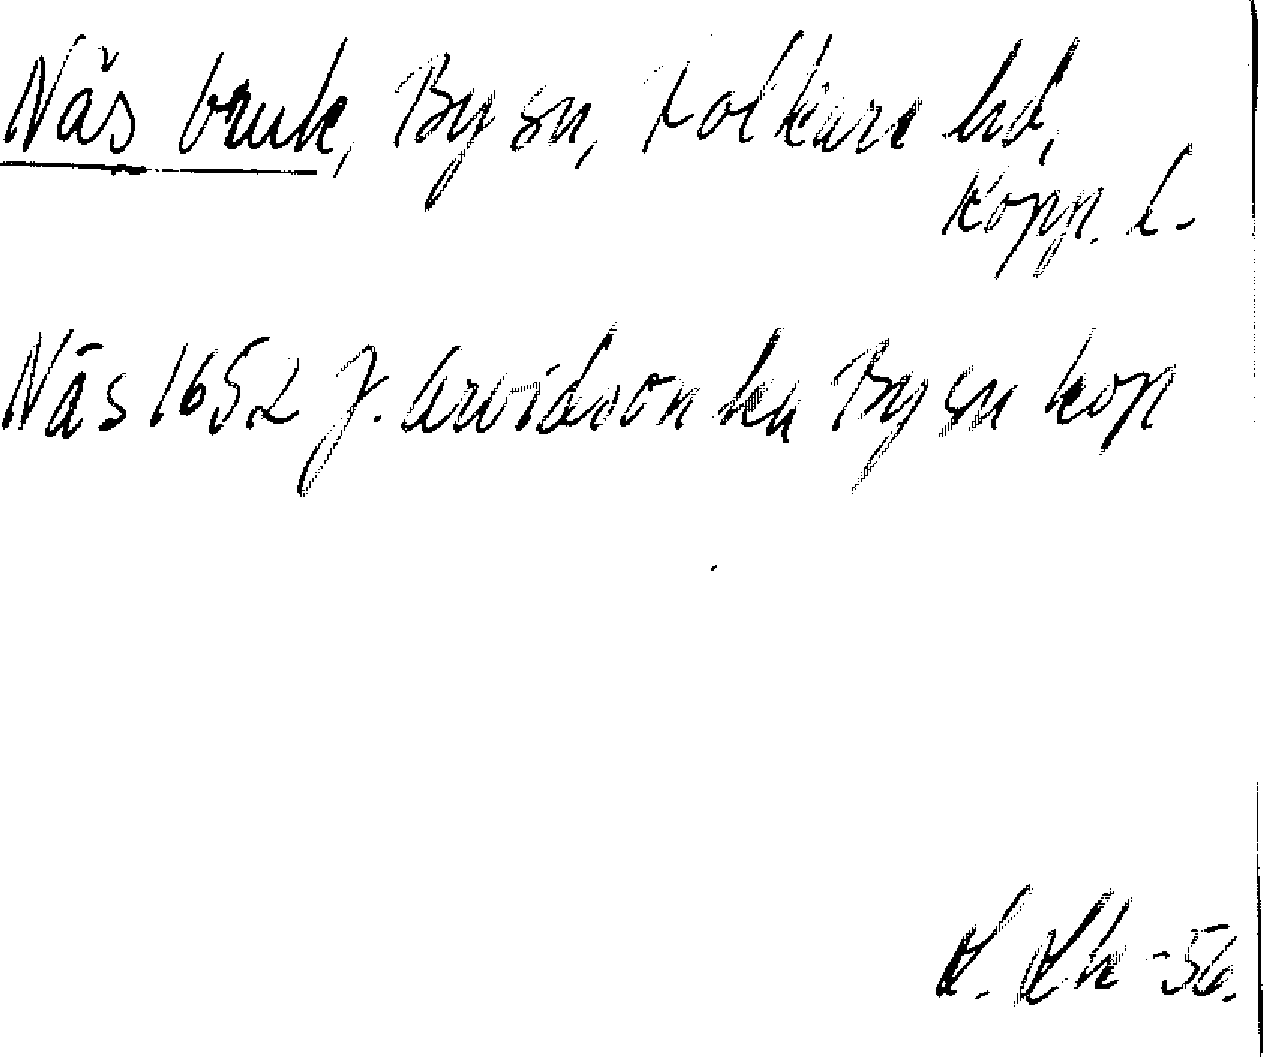 Näs bruk, By sn, Folkare hd,
Kopp. l.
Näs 1652 J. Arvidson ka By sn kop
-56.